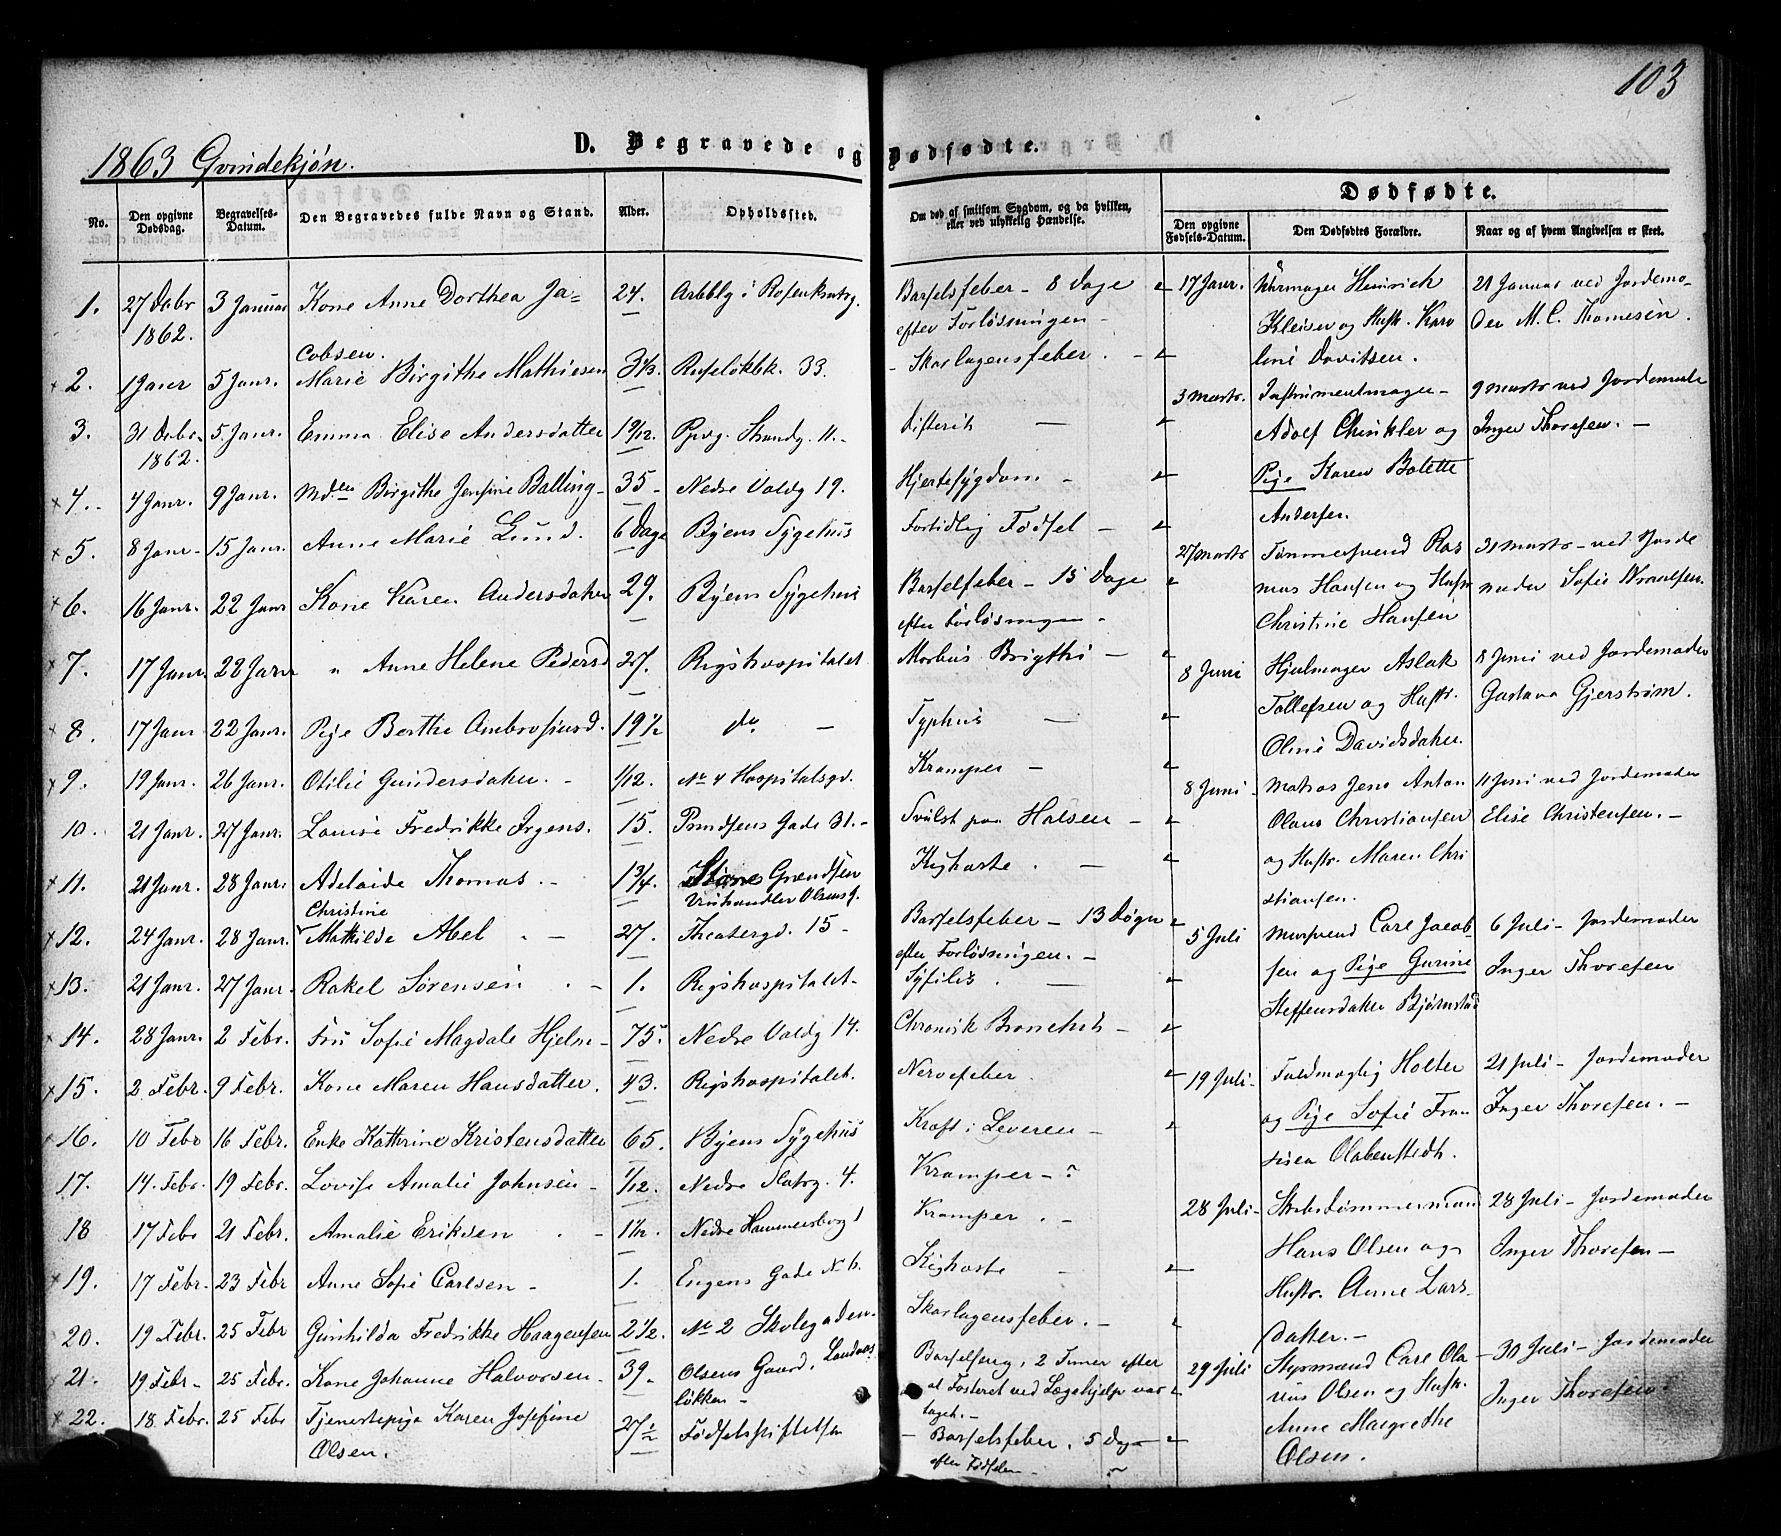 103
1863 Qvindekjøn.
D. Begravede og Dødfødte.
No.
Den opgivne Dødsdag.
Begravelses-Datum.
Den Begravedes fulde Navn og Stand.
Alder.
Opholdssted.
Om død af smitsom Sygdom, og da hvilken, eller ved ulykkelig Hændelse.
Dødfødte.
Den opgivne Fødsels-Datum.
Den Dødfødtes Forældre.
Naar og af hvem Angivelsen er skeet.
1. 27 Decbr 1862. 3 Januar Kone Anne Dorthea Ja=
cobsen. 24. Barselsfeber - 8 Dage
efter Forløsningen -
2. 1 Janr 5 Janr. Marie Birgithe Mathiesen 33. Skarlagensfeber.
3. 31 Decbr. 1862. 5 Janr. Emma Elise Andersdatter 19/12. Ppvg. Strandg. 11. Difterit
4. 4 Janr. 9 Janr. Birgithe Jensine Balling 35 Nedre Voldg 19. Hjertesygdom
5. 8 Janr. 15 Janr. Anne Marie Lund. 6 Dage Byens Sygehus Fortidlig Fødsel
6. 16 Janr. 22 Janr Kone Karen Andersdatter 29. Byens Sygehus Barselfeber - 15 Dage
efter Forløsningen.
7. 17 Janr. 22 Janr " Anne Helene Pedersd 27. Rigshospitalet Morbus Brigthi
8. 17 Janr 22 Janr. Pige Berthe Ambrosiusd. 19½ do Typhus
9. 19 Janr. 26 Janr. Otilie Gundersdatter. 1/12. No 4 Hospitalsgd. Kramper
10. 21 Janr. 27 Janr. Louise Fredrikke Irgens. 15. Gade 31. Svulst paa Halsen
11. 21 Janr. 28 Janr. Adelaide Thomas 1¾. Grændsen
Viinhandler Olsens G. Kighoste.
Christine
12. 24 Janr. 28 Janr. Mathilde Abel 27. Theatergd. 15 Barselsfeber - 13 Døgn
efter Forløsningen.
13. 21 Janr. 27 Janr. Rakel Sørensen 1. Rigshospitalet. Syfilis.
14. 28 Janr. 2 Febr. Fru Sofie Magdale Hjelm 75. Nedre Voldg 14. Chronisk Bronchit
15. 2 Febr. 9 Febr. Kone Maren Hansdatter. 43. Rigshospitalet. Nervefeber.
16. 10 Febr 16 Febr. Enke Kathrine Kristensdatter 65. Byens Sygehus Kræft i Leveren
17. 14. Febr. 19 Febr. Lovise Amalie Johnsen 1/12. Nedre Slotsg. 4. Kramper - ?
18 17 Febr 21 Febr. Amalie Eriksen Nedre Hammersborg 1 Kramper.
19. 17 Febr. 23 Febr Anne Sofie Carlsen 1. Engens Gade N 6. Kighoste
20. 19 Febr. 25 Febr Gunhilda Fredrikke Haagensen 2½. No 2 Skolegaden. Skarlagensfeber.
21. 19 Febr. 25 Febr. Kone Johanne Halvorsen 39. Olsens Gaard,
løkken Barselseng, 2 Timer efter
at Fosteret ved Lægehjelp var
taget.
22. 18. Febr. 25 Febr Tjenestepige Karen Josefine
Olsen. 27½ Fødselsstiftelsen Barselsfeber. 5 Dage
efter Fødselen
17 Janr. Uhrmager Heinrich
Kleiser og Hustr. Karo
line Davitsen. 21 Januar ved Jordemo-
der M. C. Thomesen.
3 Marts. Instrumentmager
Adolf og
Pige Karen Bolette
Andersen. 9 Marts ved Jordemoder
Inger Thoresen.
27 Marts Tømmersvend Ras
mus Hansen og Hustr
Christine Hansen 31 Marts - ved Jorde
moder Sofie
8 Juni Hjulmager Aslak
Tollefsen og Hustr.
Oline Davidsdatter. 8 Juni ved Jordemoder
Gustava Gjerstrøm.
8 Juni - Matros Jens Anton
Olaus Christiansen
og Hustr. Maren Chri
stiansen. 11 Juni ved Jordemoder
Elise Christensen.
5 Juli Mursvend Carl Jacob
sen og Pige Gurine
Steffensdatter Bjørnstad 6 Juli - Jordemoder
Inger Thoresen
19 Juli - Fuldmægtig Holter
og Pige Sofie Fran
Olabenstedt. 21 Juli - Jordemoder
Inger Thoresen.
28 Juli - Skibstømmermand
Hans Olsen og
Hustr. Anne Lars
datter. 28 Juli - Jordemoder
Inger Thoresen
29 Juli Styrmand Carl Ola
vus Olsen og Hustr.
Anne Margrethe
Olsen. 30 Juli - Jordemoder
Inger Thoresen.